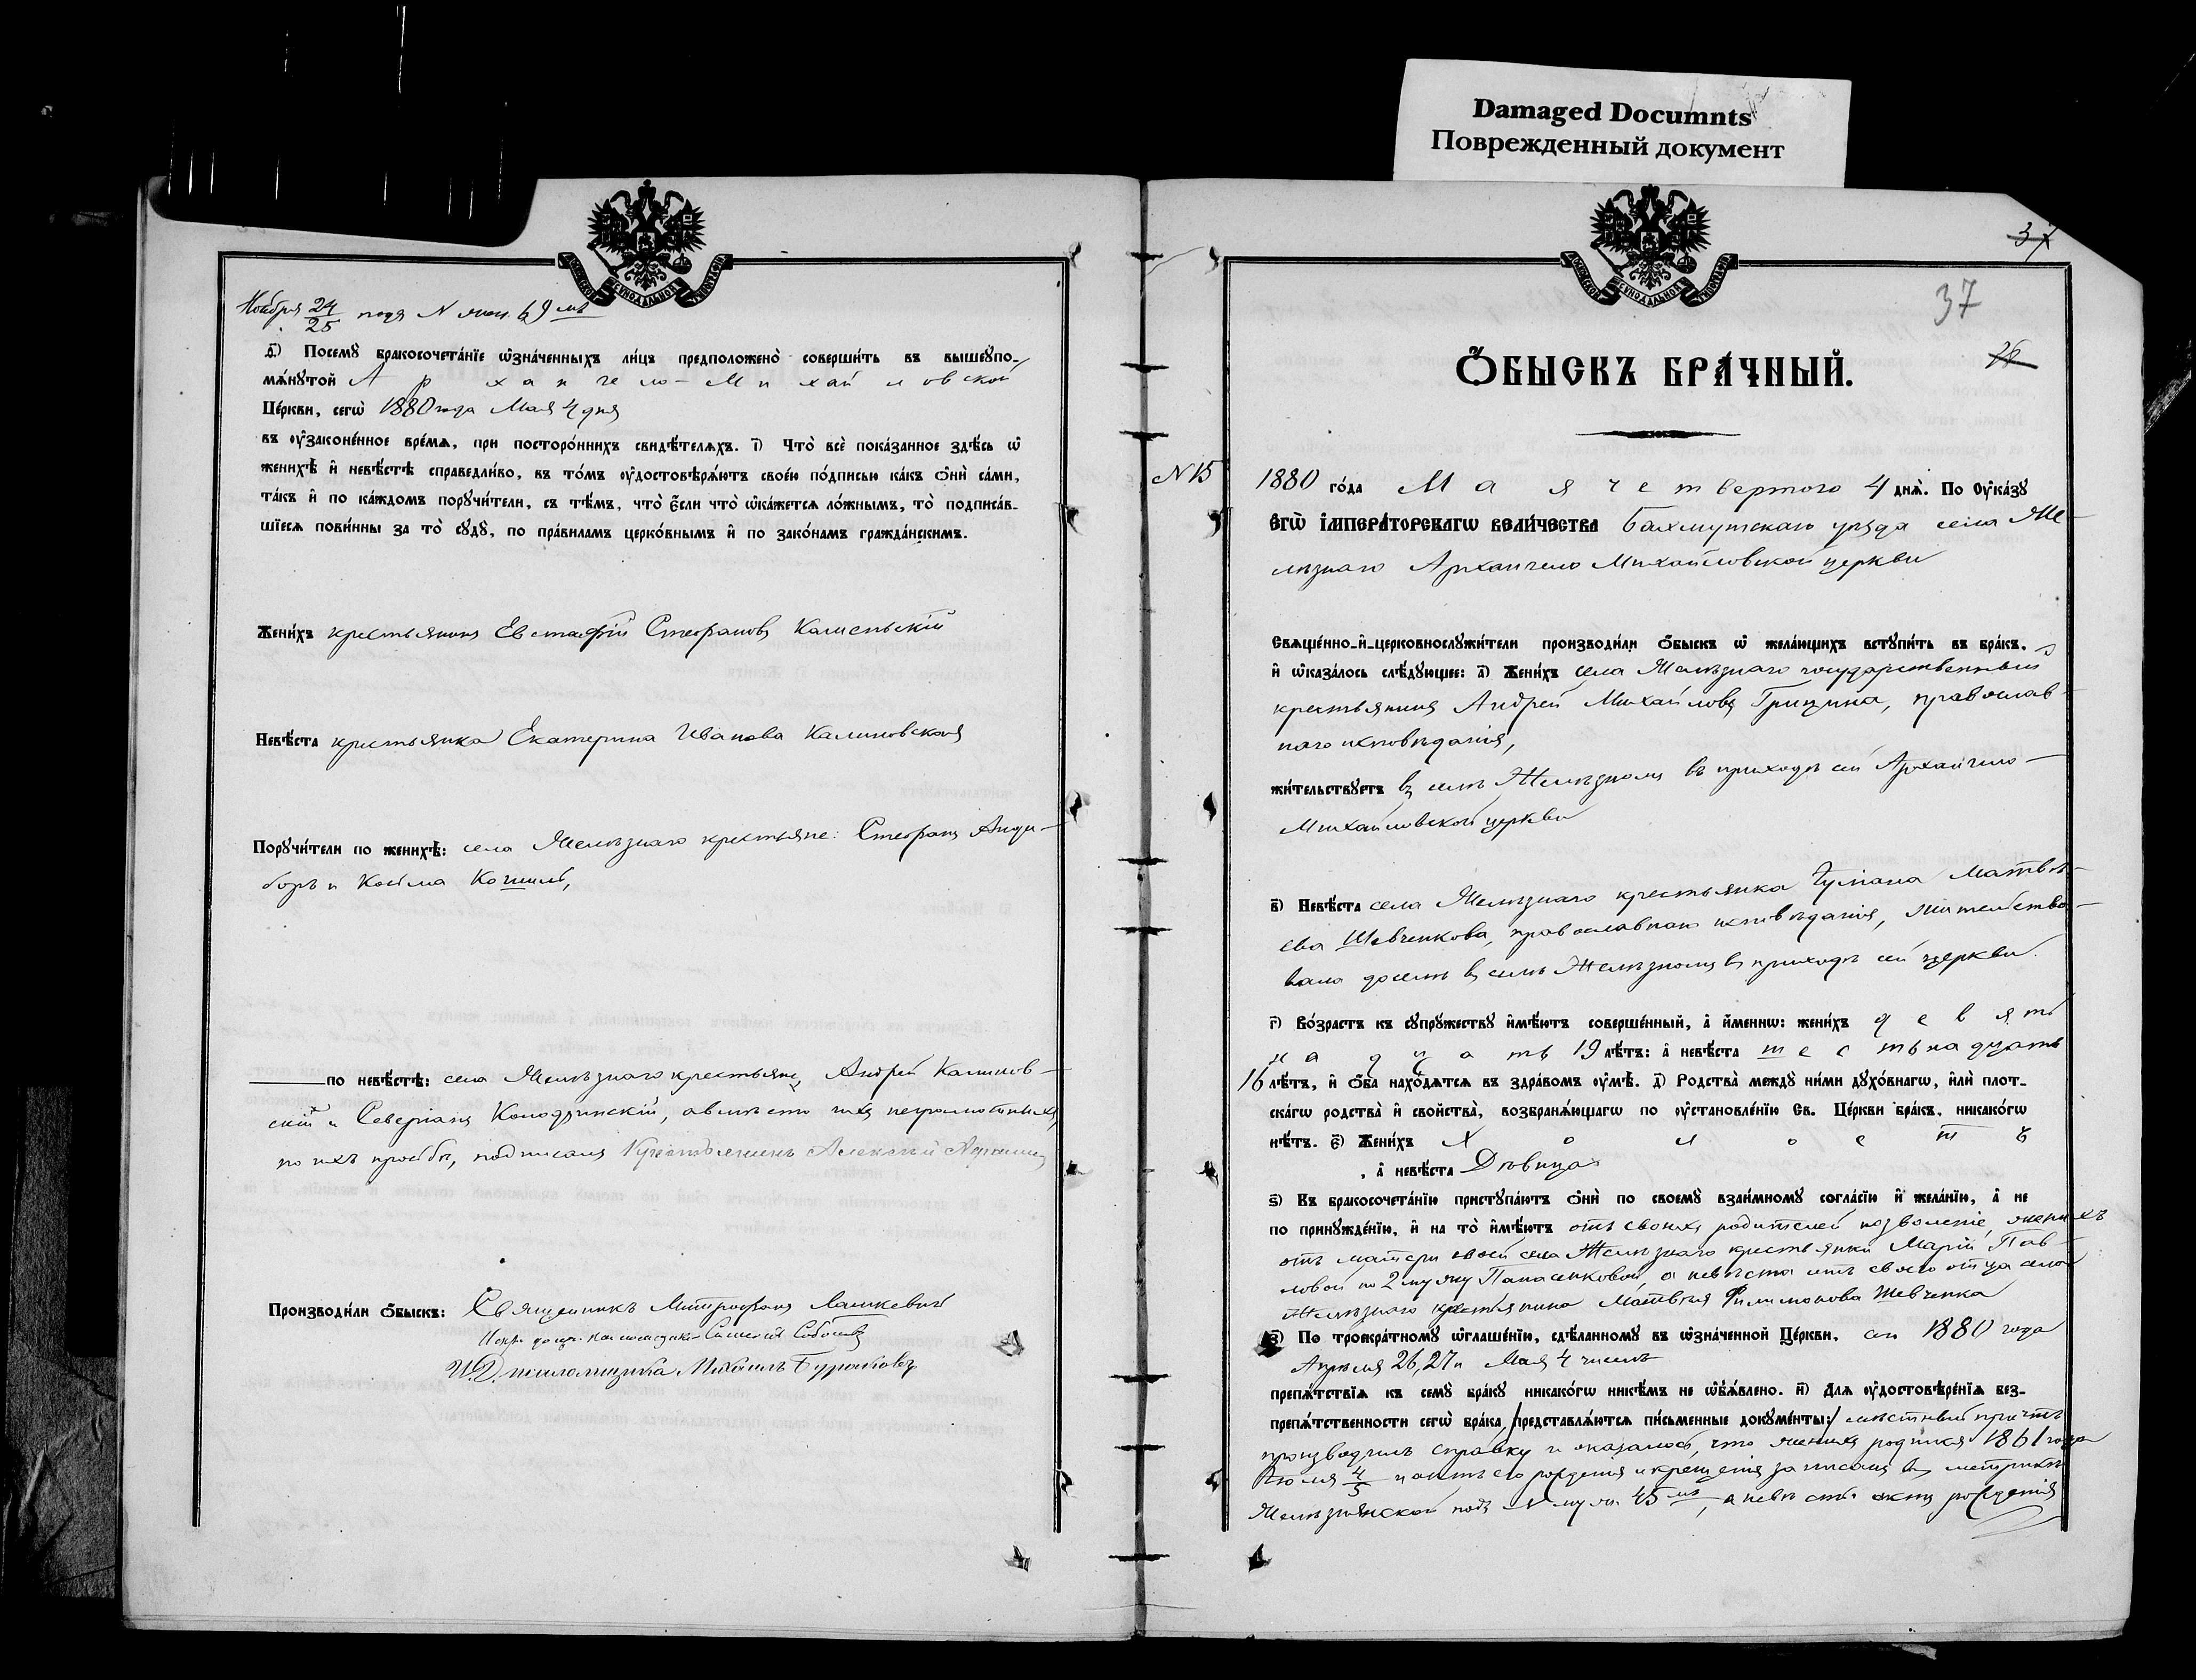 Damaged Documnts
Поврежденный документ
Ноября 24/25 подъ № женс. 69 мъ
Ѳ҃) Посемꙋ̀ бракосочета́нїе ѡ҆зна́ченныхъ ли́цъ предположено̀ соверши́ть въ вышеꙋпо-
мѧ́нꙋтой Архангело-Михайловской
Це́ркви, сегѡ̀ 1880 года Мая 4 дня
въ ᲂу҆законе́нное вре́мѧ, при посторо́ннихъ свидѣ́телѧхъ. і҃) Что̀ всѐ пока́занное здѣ́сь ѡ҆
женихѣ̀ и҆ невѣ́стѣ справедли́во, въ то́мъ ᲂу҆достовѣрѧ́ютъ свое́ю по́дписью ка́къ ѻ҆нѝ са́ми,
та́къ и҆ по ка́ждомъ порꙋчи́тели, съ тѣ́мъ, что̀ є҆́сли что̀ ѡ҆ка́жетсѧ ло́жнымъ, то̀ подписа́в-
шїесѧ пови́нны за то̀ сꙋдꙋ̀, по пра́виламъ церко́внымъ и҆ по зако́намъ гражда́нскимъ.
Жени́хъ крестьянинъ Евстафій Стефановъ Каменьскій
Невѣ́ста крестьянка Екатерина Иванова Калиновская
Порꙋчи́тели по женихѣ̀: села Желѣзнаго крестьяне: Стефанъ
и Косьма
по невѣ́стѣ: села Желѣзнаго крестьяне, Андрей Калинов-
скій и Северіанъ Колодзинскій, а вмѣсто ихъ неграмотныхъ,
по ихъ просьбѣ, подписалъ Крестьянинъ Алексѣй
Производи́ли ѻ҆́быскъ: Священникъ Митрофанъ Лашкевичъ
И.Д. псаломщика Михаилъ Бурлаковъ
37
37
26
Ѻ҆́БЫСКЪ БРА́ЧНЫЙ.
№ 15
1880 го́да Мая четвертого 4 днѧ̀. По Оу҆ка́зꙋ
Є҆гѡ̀ І҆мпера́торскагѡ Вели́чества Бахмутскаго уѣзда села Же-
лѣзнаго Архангело Михайловской церкви
Свѧще́нно-и҆-церковнослꙋжи́тели производи́ли ѻ҆́быскъ ѡ҆ жела́ющихъ встꙋпи́ть въ бра́къ,
и҆ ѡ҆каза́лось слѣ́дꙋющее: а҃) Жени́хъ села Желѣзнаго государственный
крестьянинъ Андрей Михайловъ Грицина, православ-
наго исповѣданія,
жи́тельствꙋетъ въ селѣ Желѣзномъ въ приходѣ сей Архангело-
Михайловской церкви
в҃) Невѣ́ста села Желѣзнаго крестьянка Іуліана Матвѣ-
ева Шевченкова, православнаго исповѣданія, жительство-
вала доселѣ въ селѣ Желѣзномъ въ приходѣ сей церкви.
г҃) Во́зрастъ къ сꙋпрꙋ́жествꙋ и҆мѣ́ютъ соверше́нный, а҆ и҆́меннѡ: жени́хъ девять
надцать 19 лѣ́тъ: а҆ невѣ́ста шестьнадцать
16 лѣ́тъ, и҆ ѻ҆́ба нахо́дѧтсѧ въ здра́вомъ ᲂу҆мѣ̀. д҃) Родства̀ междꙋ̀ ни́ми дꙋхо́внагѡ, и҆лѝ плот-
ска́гѡ родства̀ и҆ сво́йства, возбранѧ́ющагѡ по ᲂу҆становле́нїю Св. Це́ркви бра́къ, никако́гѡ
нѣ́тъ. є҃) Жени́хъ Холостъ
, а҆ невѣ́ста Дѣвица
ѕ҃) Къ бракосочета́нїю пристꙋпа́ютъ ѻ҆нѝ по своемꙋ̀ взаи́мномꙋ согла́сїю и҆ жела́нїю, а҆ не
по принꙋжде́нїю, и҆ на то̀ и҆мѣ́ютъ отъ своихъ родителей позволеніе, женихъ
отъ матери своей села Желѣзнаго крестьянки Маріи Пав-
ловой по 2 мужу Панасенковой, а невѣста отъ своего отца села
Желѣзнаго крестьянина Матвѣя Филимонова Шевченка
з҃) По троекра́тномꙋ ѡ҆глаше́нїю, сдѣ́ланномꙋ въ ѡ҆зна́ченной Це́ркви, сего 1880 года
Апрѣля 26, 27 и Мая 4 числъ
препѧ́тствїѧ къ семꙋ̀ бра́кꙋ никако́гѡ никѣ́мъ не ѡ҆бъѧ́влено. и҃) Длѧ ᲂу҆достовѣре́нїѧ без-
препѧ́тственности сегѡ̀ бра́ка /представлѧ́ютсѧ пи́сьменные докꙋме́нты:/ мѣстный причтъ
производилъ справку и оказалось, что женихъ родился 1861 года
Іюля 4/5 и актъ его рожденія и крещенія записанъ въ метрикѣ
Желѣзнянской подъ № муж. 45 мъ, а невѣсты актъ рожденія